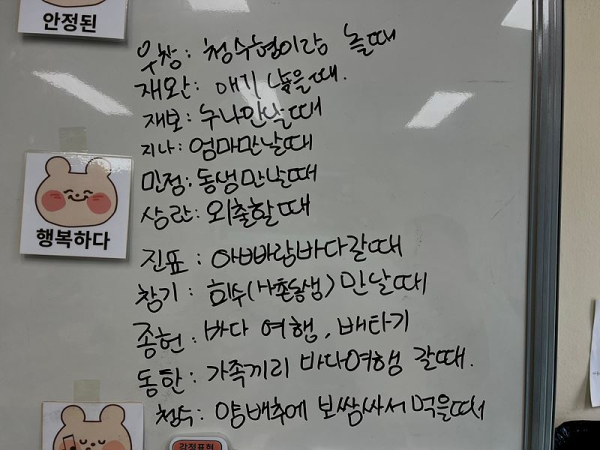 안정된
우창: 청수형이랑 놀때
재완: 애기 낳을때.
재보: 누나만날때
지나: 엄마만날때
민정: 동생만날때
상란: 외출할때
행복하다
진표: 아빠랑바다갈때
창기: 희수(사촌동생) 만날때
종헌: 바다 여행, 배타기
동한: 가족끼리 바다여행 갈때.
청수: 양배추에 보쌈싸서 먹을때
감정표현